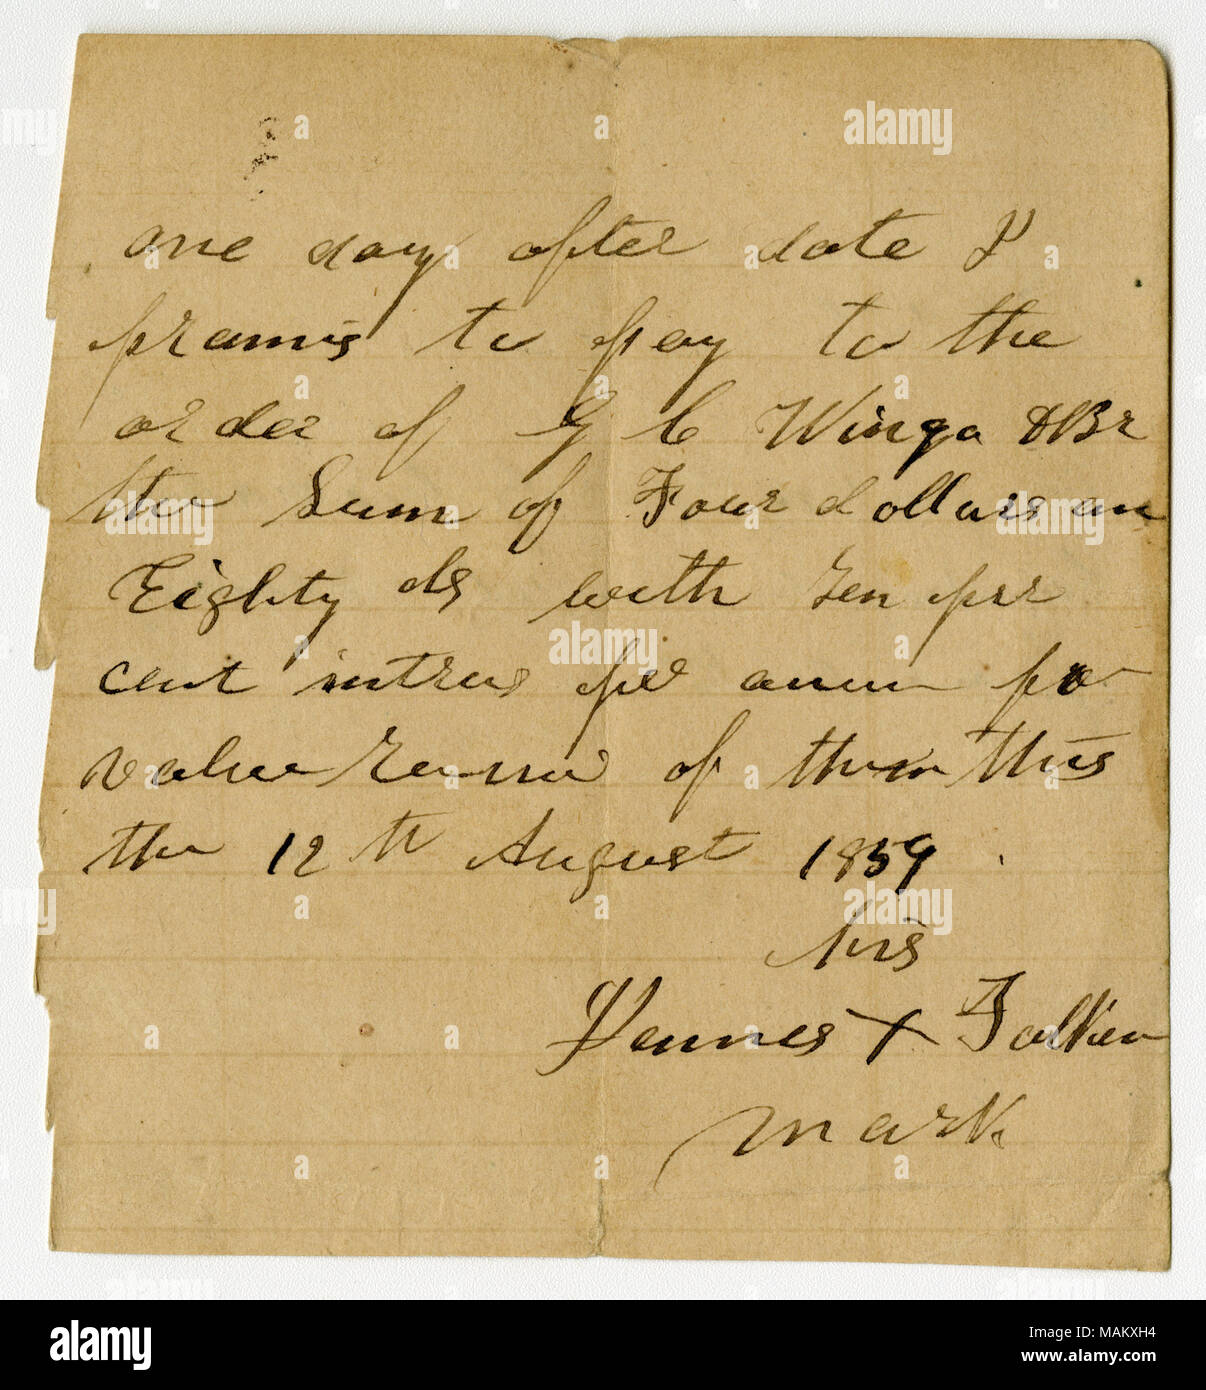 one day after date I
promis to pay to the
order of G C Winga & Br
the Sum of Four dollars an
Eighty cts with Ten per
cent intres per anum for
value of them this
the 12 th August 1859
his
X
mark
alamy
Image ID: MAKXH4
www.alamy.com